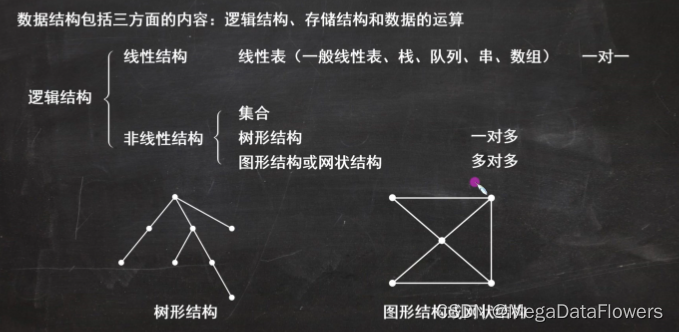 数据结构包括三方面的内容：逻辑结构、存储结构和数据的运算
线性结构 线性表（一般线性表、栈、队列、串、数组） 一对一
逻辑结构
集合
非线性结构 树形结构 一对多
图形结构或网状结构 多对多
树形结构
图形结构或网状结构
CSDN @MegaDataFlowers